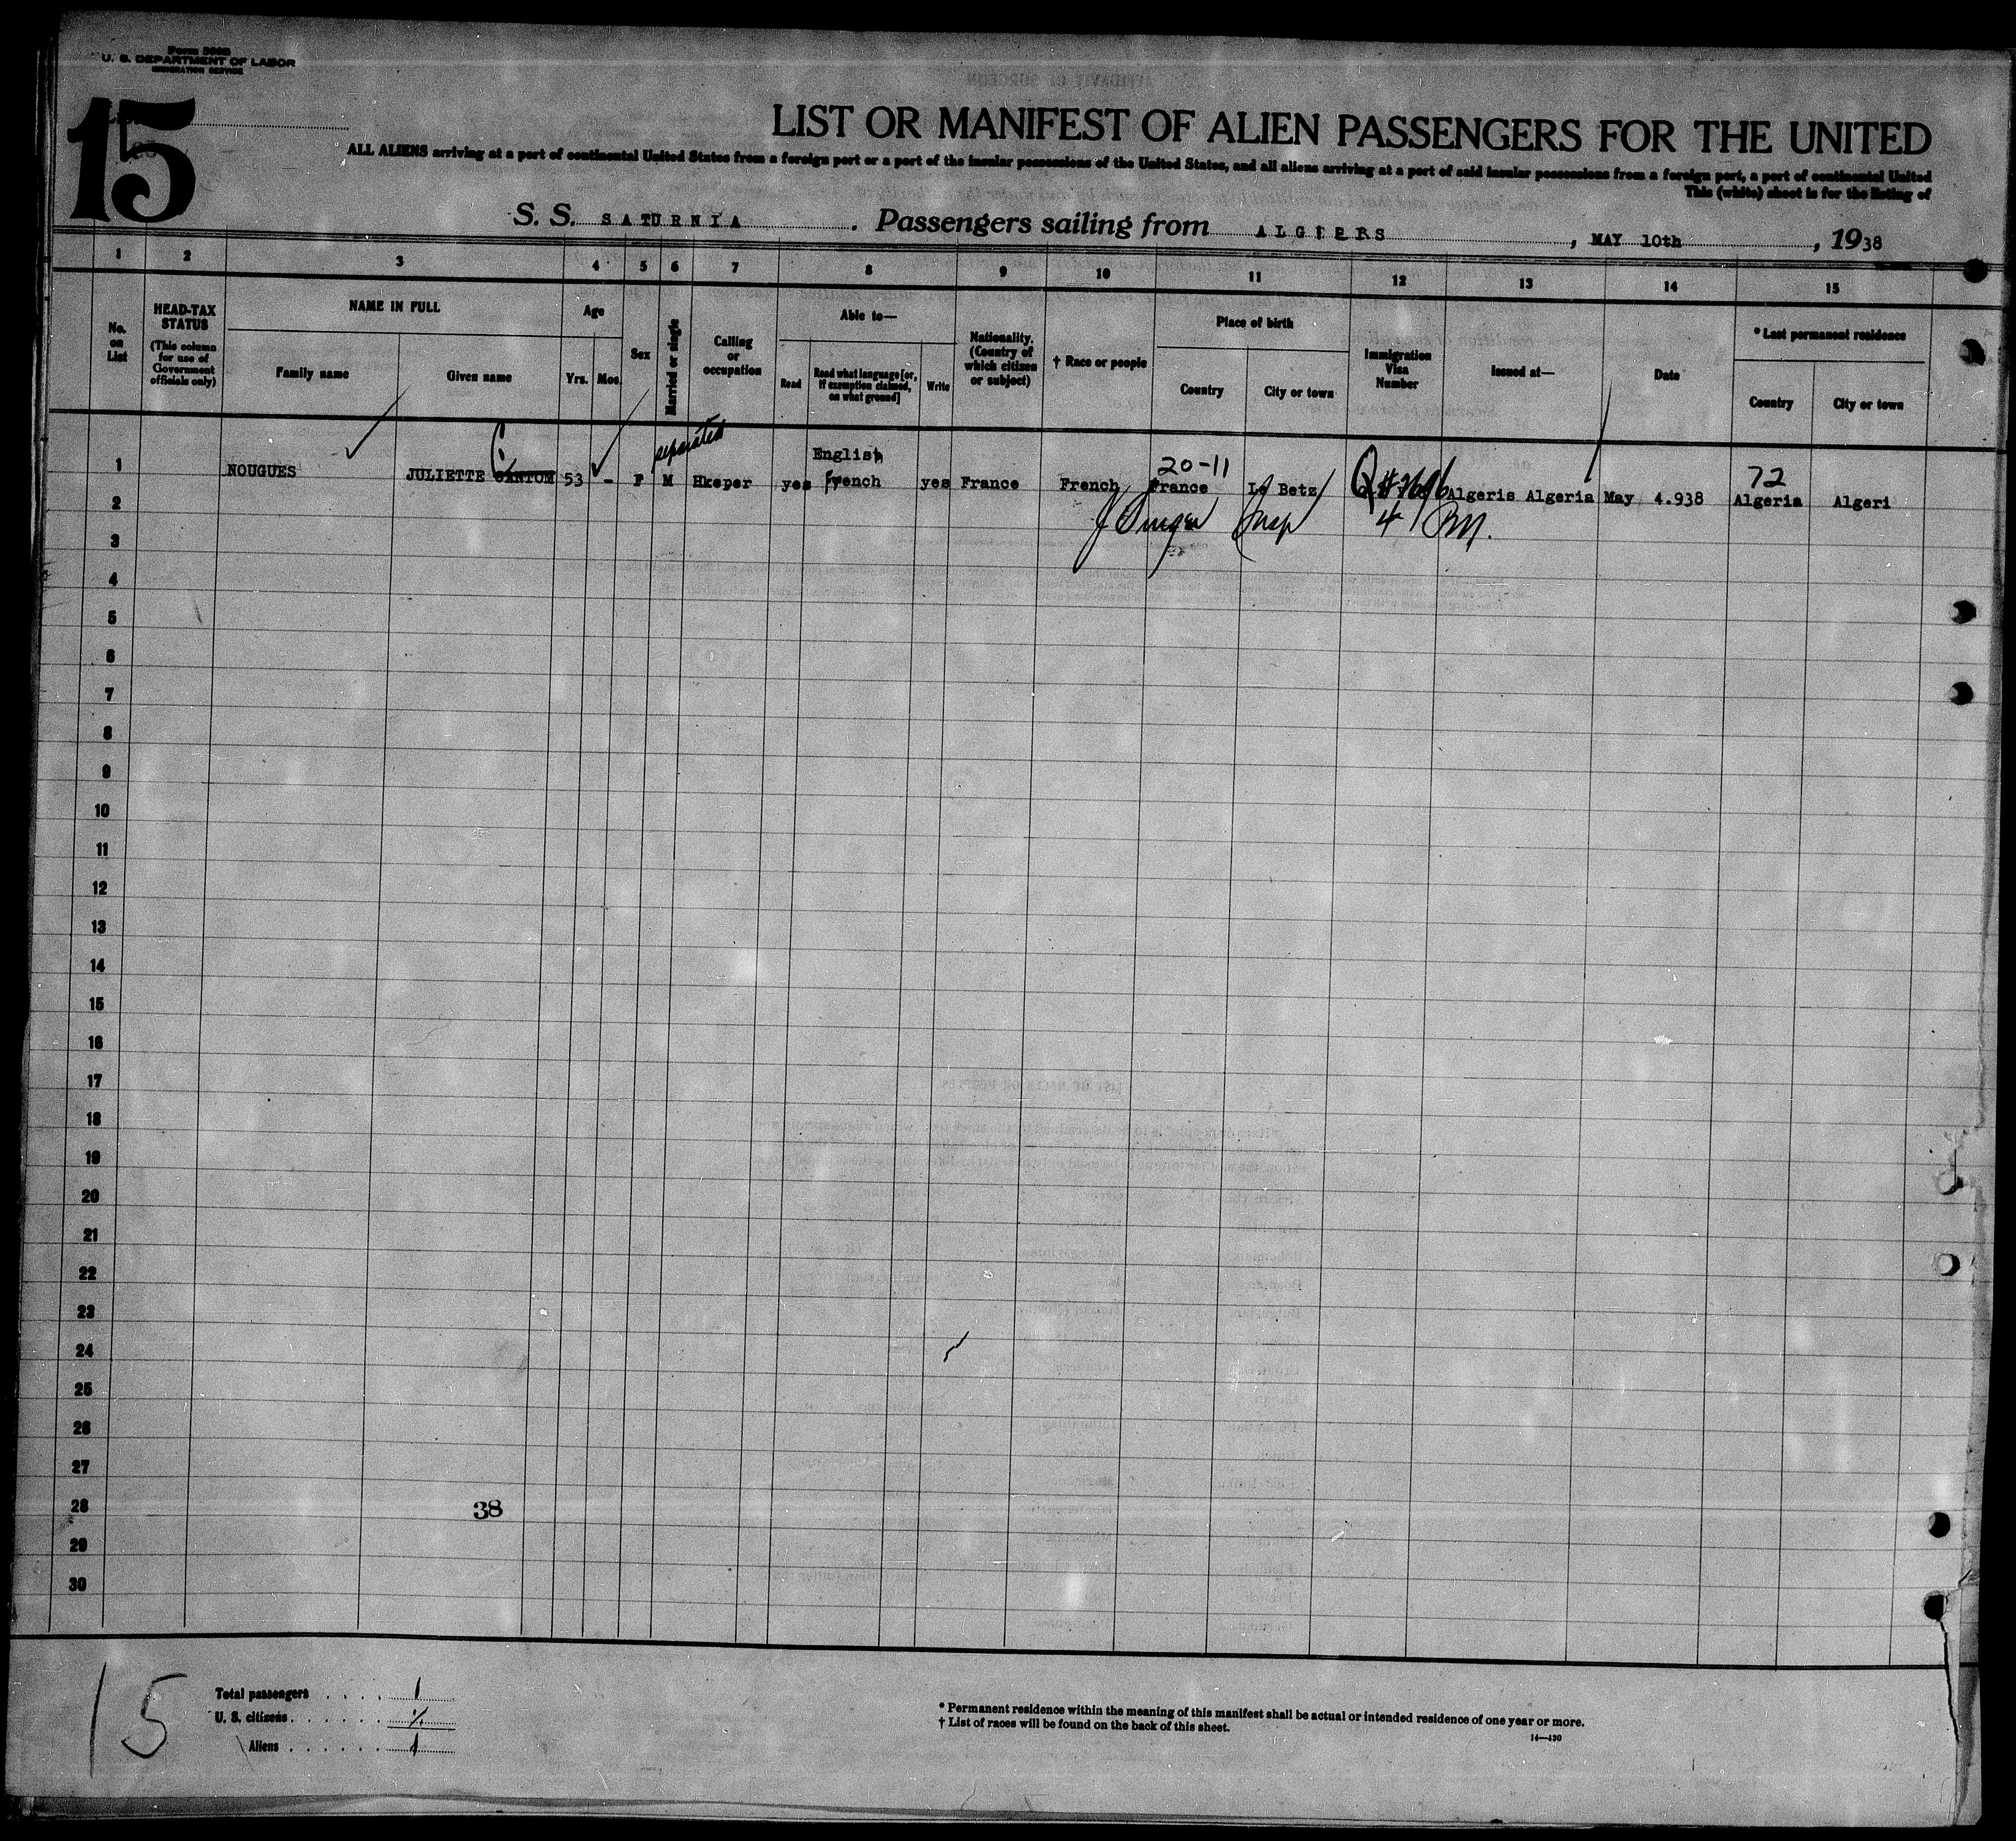 U. S. DEPARTMENT OF LABOR
IMMIGRATION SERVICE
15
LIST OR MANIFEST OF ALIEN PASSENGERS FOR THE UNITED
ALL ALIENS arriving at a port of continental United States from a foreign port or a port of the insular possessions of the United States, and all aliens arriving at a port of said insular possessions from a foreign port, a port of continental United
This (white) sheet is for the listing of
S. S. SATURNIA . Passengers sailing from ALGIERS , MAY 10th , 1938
1 2 3 4 5 6 7 8 9 10 11 12 13 14 15
No. on List
HEAD-TAX STATUS (This column for use of Government officials only)
NAME IN FULL
Family name
Given name
Age
Yrs.
Mos.
Sex
Married or single
Calling or occupation
Able to—
Read
Read what language [or, if exemption claimed, on what ground]
Write
Nationality. (Country of which citizen or subject)
† Race or people
Place of birth
Country
City or town
Immigration Visa Number
Issued at—
Date
* Last permanent residence
Country
City or town
separated
English
20-11
72
1 NOUGUES JULIETTE 53 - F M Hkeper yes French yes France French France Le Betz Algeris Algeria May 4.938 Algeria Algeri
2
4
3
4
5
6
7
8
9
10
11
12
13
14
15
16
17
18
19
20
21
22
23
24
25
26
27
28 38
29
30
15
Total passengers . . . . 1
U. S. citizens . . . . . .
Aliens . . . . . . 1
* Permanent residence within the meaning of this manifest shall be actual or intended residence of one year or more.
† List of races will be found on the back of this sheet.
14—430